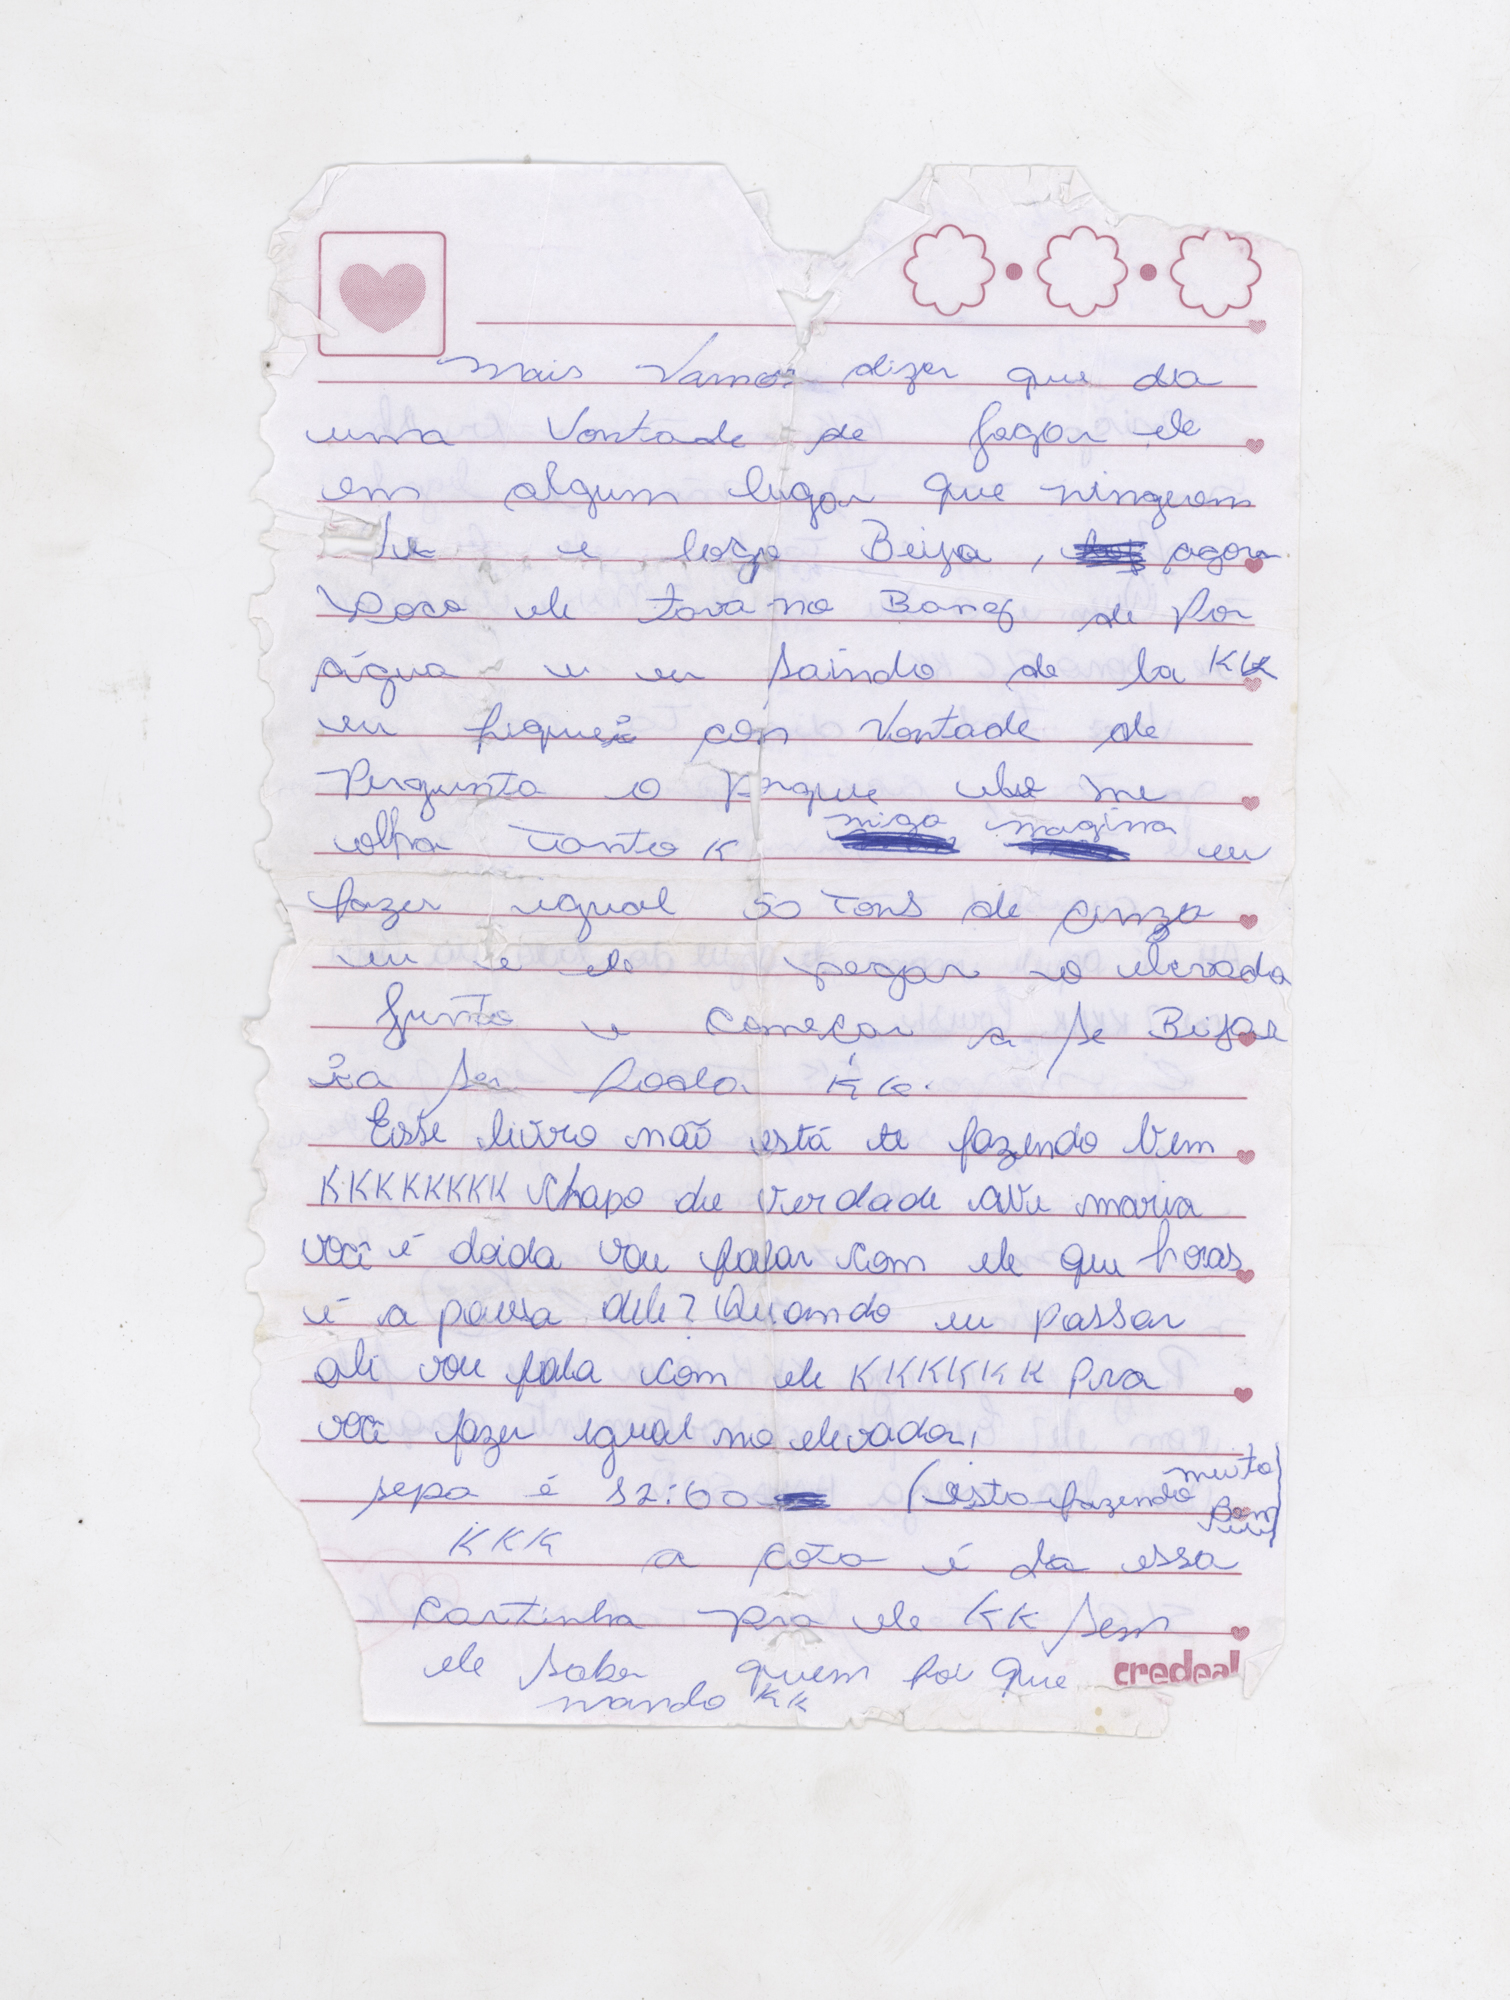 mais vamos dizer que da
uma vontade de pegar ele
em algum lugar que ninguem
le e lasca Beija, agora
Poco ele tava no Banq de por
água e eu saindo de la KKK
eu fiquei con vontade de
Pergunta o porque ele me
olha tanto K miga magina eu
fazer igual 50 tons de cinza
eu e ele pegar o elevada
junto e começar a se Beijar
ia ser foda KK.
Esse livro não está te fazendo bem
KKKKKKKK chapo de verdade ave maria
você é doida vou falar com ele que horas
é a pausa dele? Quando eu passar
ali vou fala com ele KKKKKKK pra
você fazer igual no elevador,
sepa é 12:00 (esta fazendo muito Bem
KKK a cota é da essa
cartinha pra ele KK sem
ele saber quem foi que credeal
mando KK